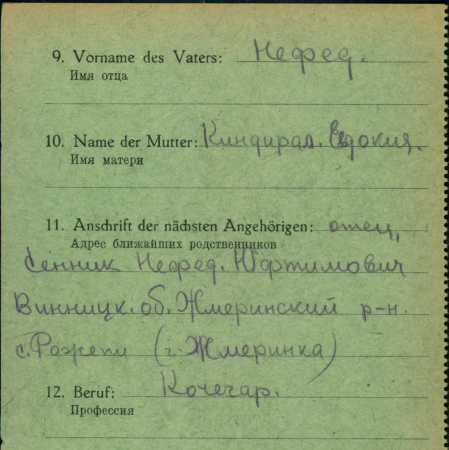 9. Vorname des Vaters: Нефед.
Имя отца
10. Name der Mutter: Киндирал. Евдокия.
Имя матери
11. Anschrift der nächsten Angehörigen: отец,
Адрес ближайших родственников
Сенник Нефед. Юфтимович
Винницк. об. Жмеринский р-н.
с. Рожепи (г. Жмеринка)
12. Beruf: Кочегар.
Профессия